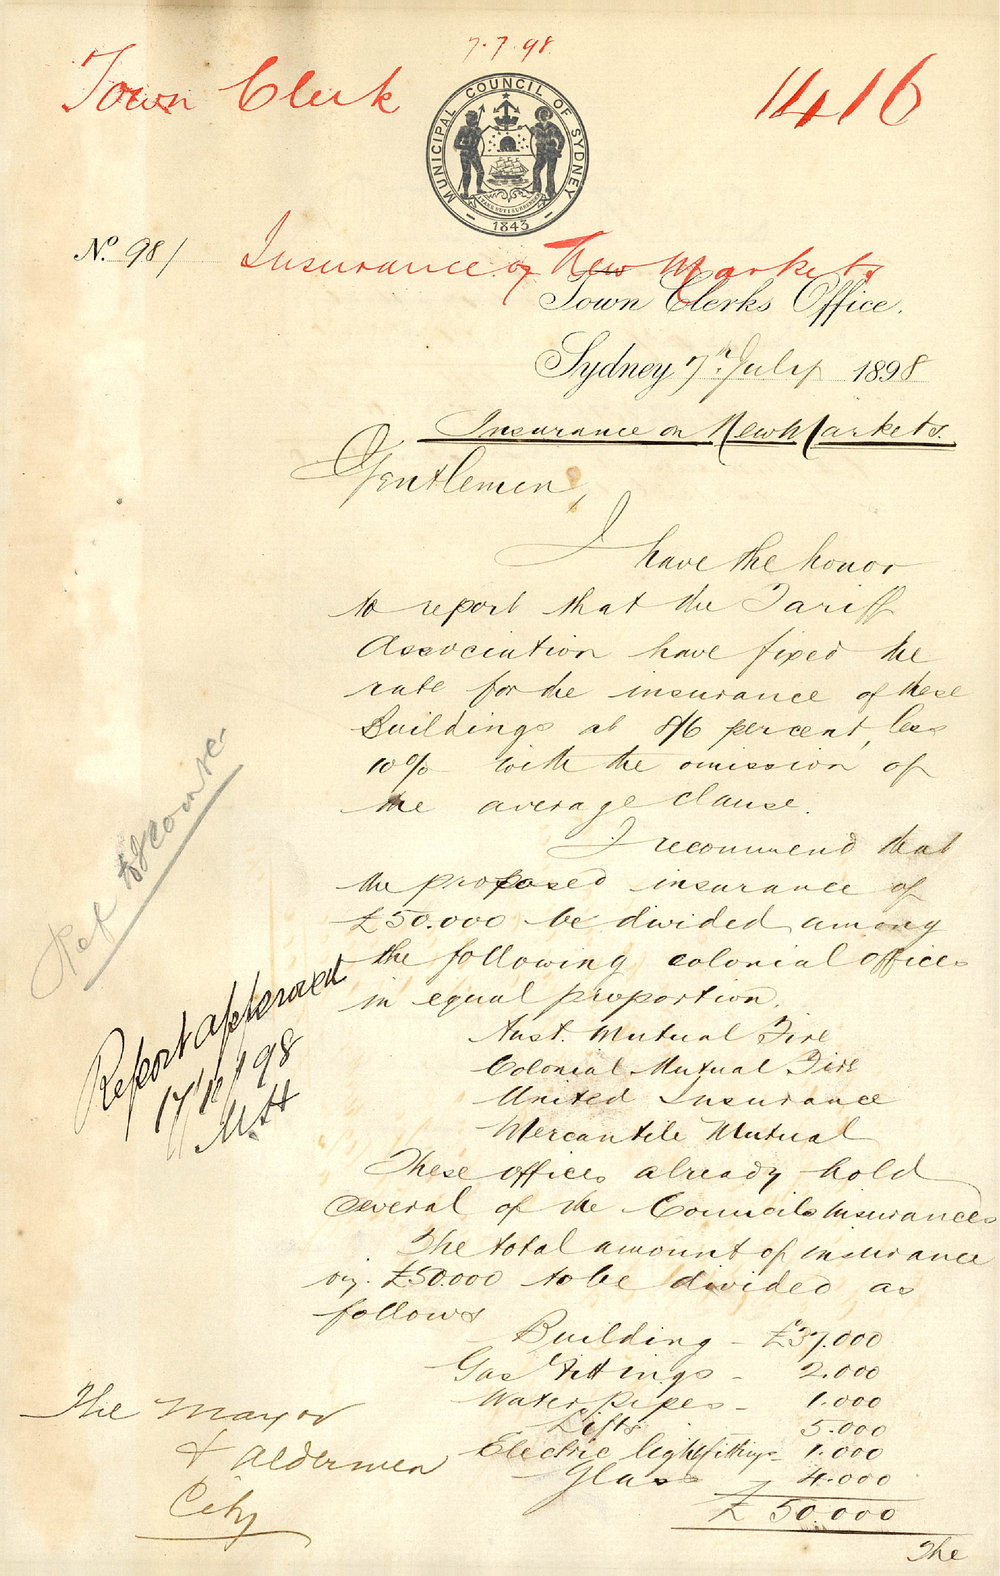 7.7.98.
Town Clerk
1416
MUNICIPAL COUNCIL OF SYDNEY
1843
No. 98/
Insurance of New Markets
Town Clerks Office.
Sydney 7th July 1898
Insurance on New Markets.
Gentlemen,
I have the honor
to report that the Tariff
Association have fixed the
rate for the insurance of these
Buildings at 8/6 percent, less
10% with the omission of
the average clause.
I recommend that
the proposed insurance of
£50.000 be divided among
the following colonial offices
in equal proportion.
Aust. Mutual Fire
Colonial Mutual Fire
United Insurance
Mercantile Mutual
These offices already hold
several of the Councils Insurances
The total amount of insurance
viz. £50.000 to be divided as
follows
Building - £37.000
Gas Fittings - 2.000
Water pipes - 1.000
Lifts 5.000
Electric light fittings - 1.000
Glass 4.000
£ 50.000
The
Ref
Report approved
98
M.H
The Mayor
& Aldermen
City